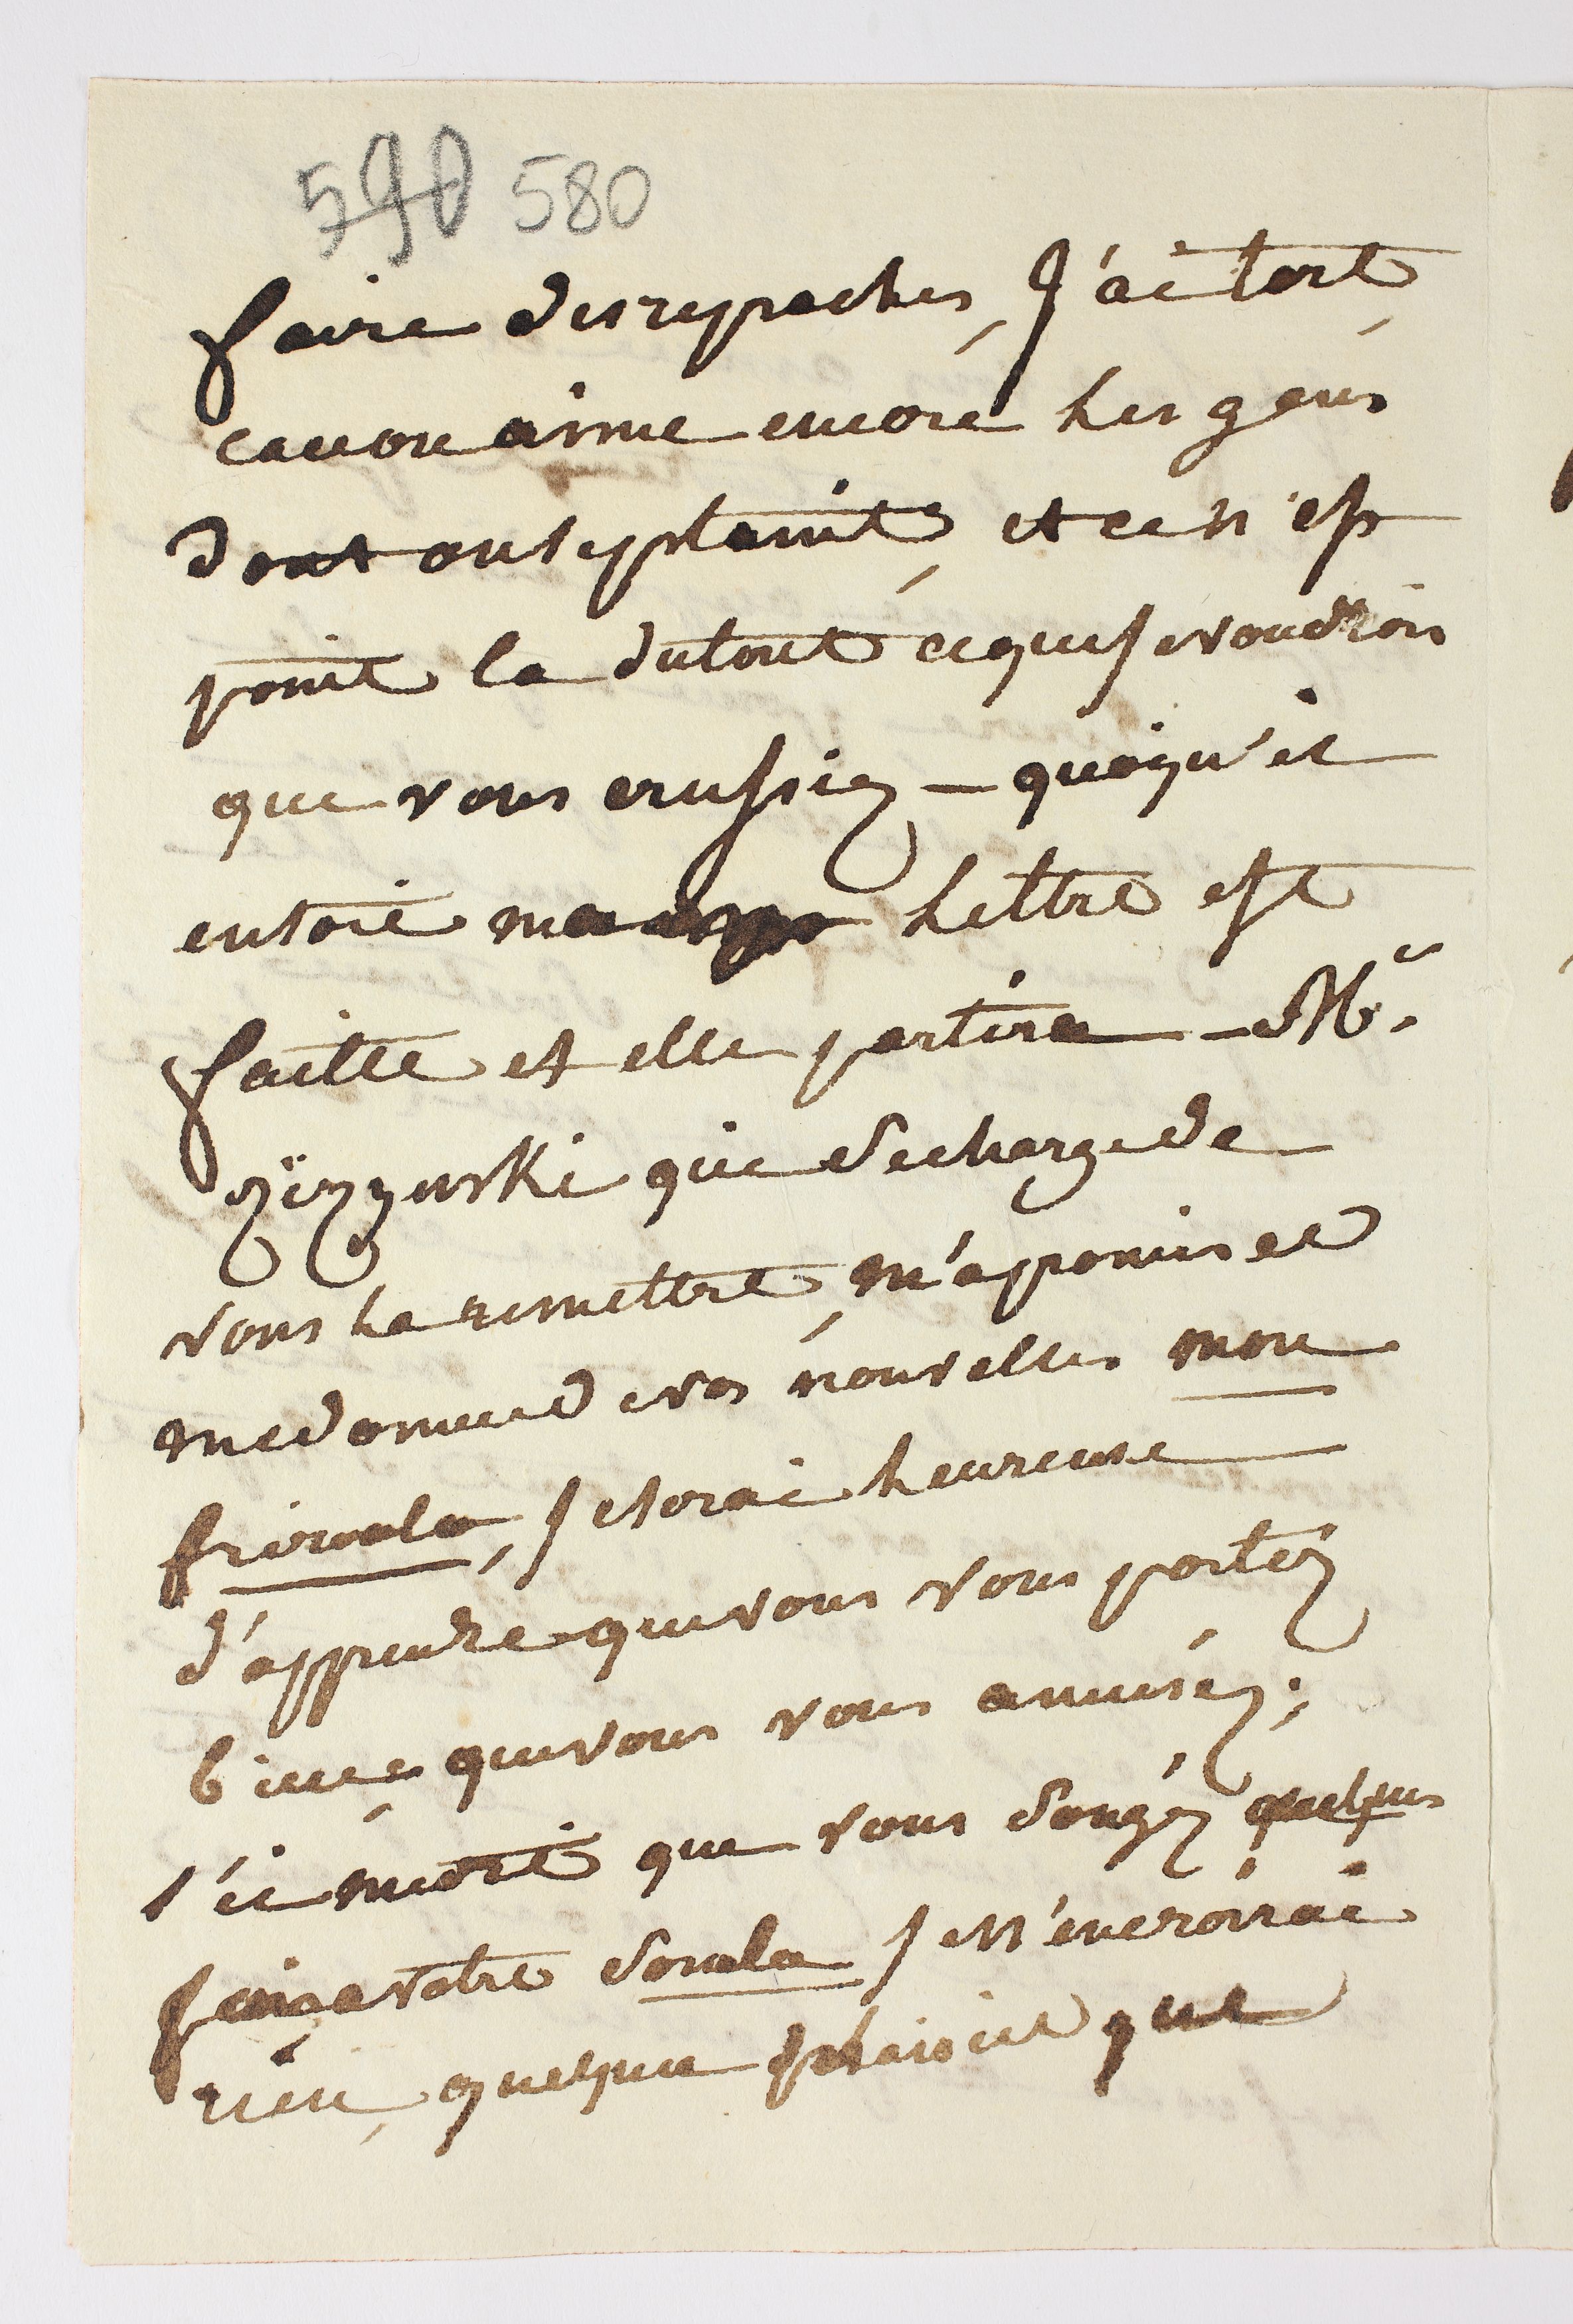 590 580
faire des reproches, J'ai tort
car on aime encore les gens
dont on se plaint, et ce n'est
point la du tout ce que je voudrois
que vous crussiez – quoiqu'il
en soit ma Lettre est
faitte et elle partira – Mr.
qui se charge de
vous la remettre, m'a promis de
me donner de vos nouvelles mon
je serai heureuse
d'apprendre que vous vous portéz
bien, que vous vous amuséz;
que vous songéz quelque
fois, a votre je n'en croirai
rien, quelque plaisir que